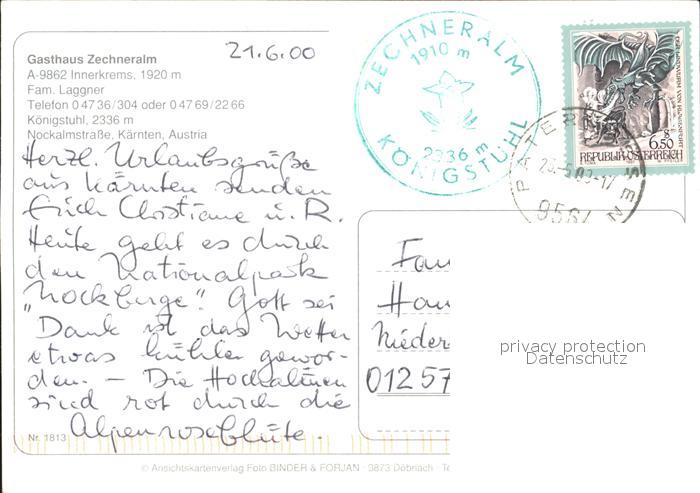 21.6.00
Gasthaus Zechneralm
A-9862 Innerkrems, 1920 m
Fam. Laggner
Telefon 0 47 36/304 oder 0 47 69/22 66
Königstuhl, 2336 m
Nockalmstraße, Kärnten, Austria
Herzl. Urlaubsgrüße
aus Kärnten senden
Erich Christiane u. R.
Heute geht es durch
den Nationalpark
„Nockberge". Gott sei
Dank ist das Wetter
etwas kühler gewor-
den. – Die Hochalmen
sind rot durch die
Alpenroseblüte.
Nr. 1813
ZECHNERALM
1910 m
2336 m
KÖNIGSTUHL
DER LINDWURM VON KLAGENFURT
S
6.50
REPUBLIK ÖSTERREICH
PATERN
SEN
9564
Fam
Han
Nieder
01257
privacy protection
Datenschutz
© Ansichtskartenverlag Foto BINDER & FORJAN · 9873 Döbriach · Te